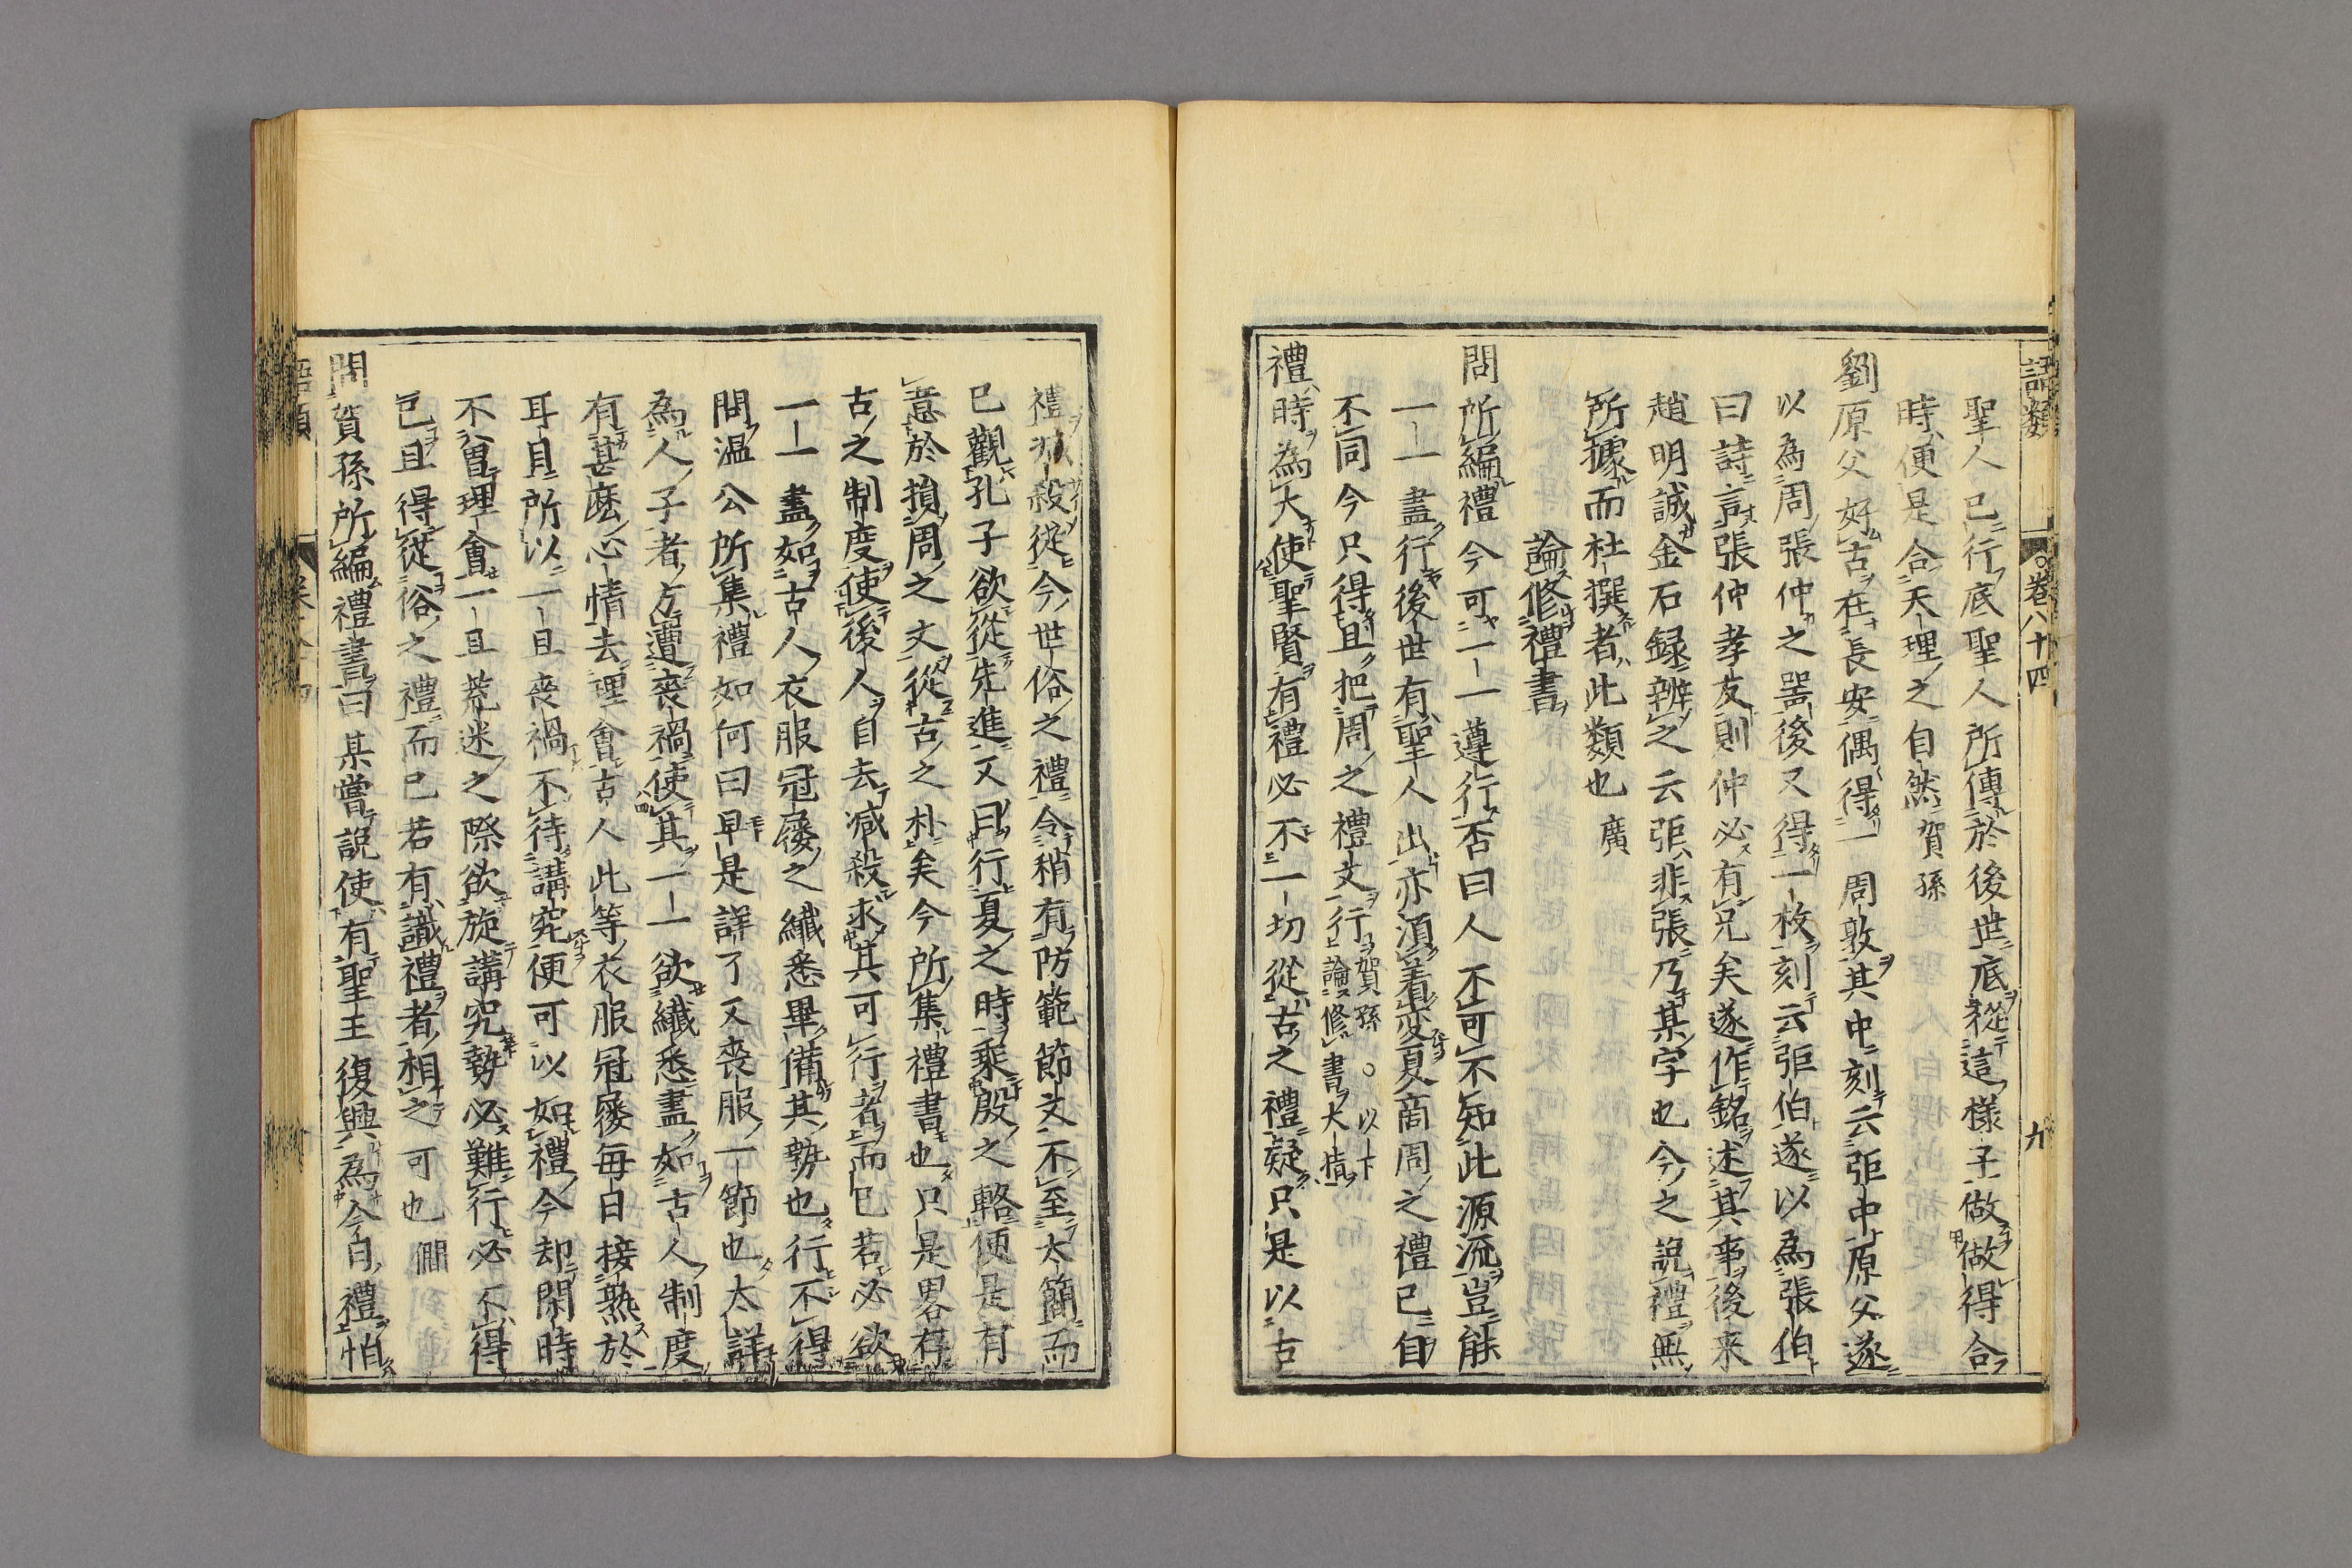 語類 卷八十四 九
聖人已行底聖人所傳於後世底從這樣子做做得合
時便是合天理之自然賀孫
劉原父好古在長安偶得一周敦其中刻云弡中原父遂
以為周張仲之噐後又得一枚刻云弡伯遂以為張伯
曰詩言張仲孝友則仲必有兄矣遂作銘述其事後来
趙明誠金石録辨之云弡非張乃某字也今之說禮無
所據而杜撰者此類也廣
論修禮書
問所編禮今可一一遵行否曰人不可不知此源流豈能
一一盡行後世有聖人出亦湏着変夏商周之禮已自
不同今只得且把周之禮文行賀孫○以下論修書大指
禮時為大使聖賢有禮必不一切從古之禮疑只是以古
禮减殺從今世俗之禮令稍有防範節文不至太簡而
已觀孔子欲從先進又曰行夏之時乘殷之輅便是有
意於損周之文從古之朴矣今所集禮書也只是畧存
古之制度使後人自去减殺求其可行者而已若必欲
一一盡如古人衣服冠屨之纎悉畢備其勢也行不得
問温公所集禮如何曰早是詳了又喪服一節也太詳
為人子者方遭喪禍使其一一欲纎悉盡如古人制度
有甚麽心情去理會古人此等衣服冠屨每日接熟於
耳目所以一旦喪禍不待講究便可以如禮今却閑時
不曾理會一旦荒迷之際欲旋講究勢必難行必不得
已且得從俗之禮而已若有識禮者相之可也僩
問賀孫所編禮書曰某嘗說使有聖王復興為今日禮怕
語類